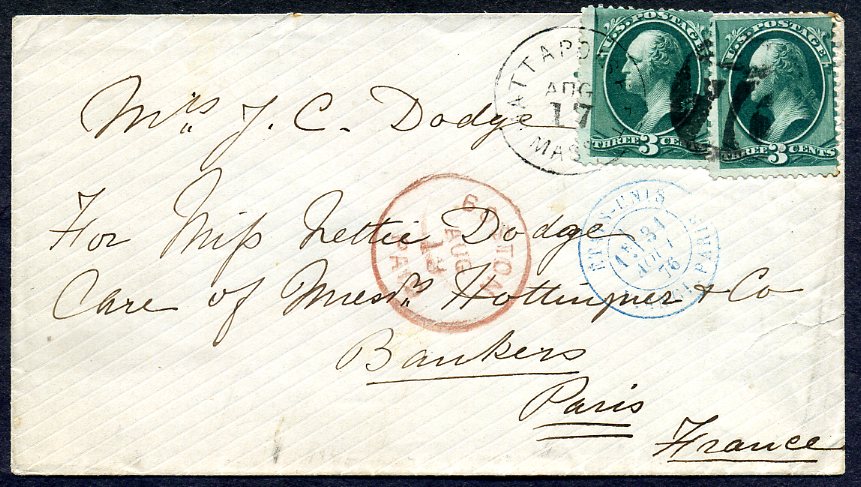 U.S. POSTAGE
THREE 3 CENTS
U.S. POSTAGE
THREE 3 CENTS
MATTAPOISETT
AUG
17
MASS
Mrs J. C. Dodge
For Miss Nettie Dodge
Care of Messrs Hottinguer & Co
Bankers
Paris
France
BOSTON
AUG
18
PAID
ETATS-UNIS
31
AOUT
76
PARIS